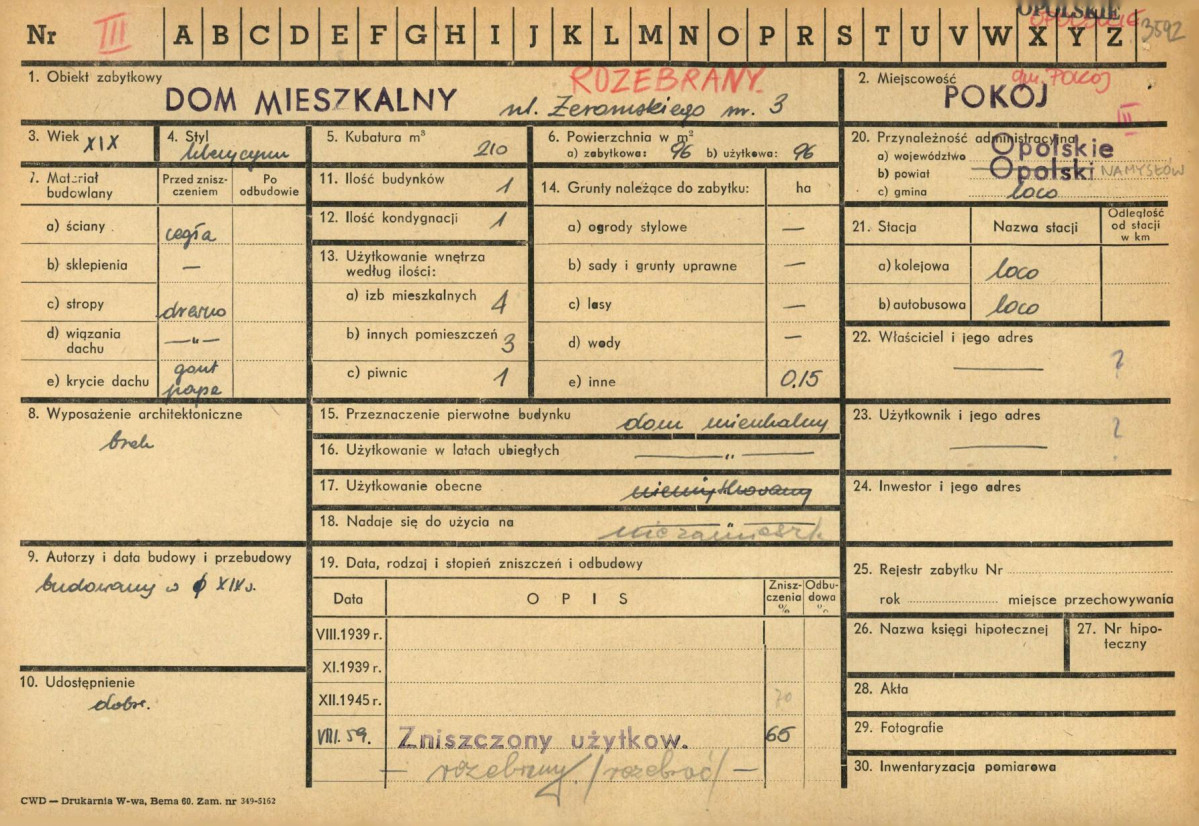 OPOLSKIE
Nr III A B C D E F G H I J K L M N O P R S T U V W X Y Z 3592
1. Obiekt zabytkowy
ROZEBRANY.
DOM MIESZKALNY ul. Żeromskiego nr. 3
2. Miejscowość gm. POKÓJ
POKÓJ
III
3. Wiek XIX
4. Styl
5. Kubatura m³ 210
6. Powierzchnia w m²
a) zabytkowa: 96 b) użytkowa: 96
20. Przynależność administracyjna
a) województwo Opolskie
b) powiat Opolski NAMYSŁÓW
c) gmina loco
7. Materiał budowlany
Przed znisz-
czeniem
Po
odbudowie
a) ściany cegła
b) sklepienia —
c) stropy drewno
d) wiązania
dachu —„—
e) krycie dachu gont
papa
11. Ilość budynków 1
12. Ilość kondygnacji 1
13. Użytkowanie wnętrza
według ilości:
a) izb mieszkalnych 4
b) innych pomieszczeń 3
c) piwnic 1
14. Grunty należące do zabytku: ha
a) ogrody stylowe —
b) sady i grunty uprawne —
c) lasy —
d) wody —
e) inne 0.15
21. Stacja
Nazwa stacji
Odległość
od stacji
w km
a) kolejowa loco
b) autobusowa loco
22. Właściciel i jego adres
— ?
23. Użytkownik i jego adres
— ?
24. Inwestor i jego adres
8. Wyposażenie architektoniczne
brak
15. Przeznaczenie pierwotne budynku dom mieszkalny
16. Użytkowanie w latach ubiegłych —„—
17. Użytkowanie obecne
18. Nadaje się do użycia na —„—
niezamieszk.
9. Autorzy i data budowy i przebudowy
budowany w XIX w.
10. Udostępnienie
dobre.
19. Data, rodzaj i stopień zniszczeń i odbudowy
Data
OPIS
Znisz-
czenia
%
Odbu-
dowa
%
VIII.1939 r.
XI.1939 r.
XII.1945 r. 70
VIII. 59. Zniszczony użytkow. 65
— rozebrany /rozebrać/ —
25. Rejestr zabytku Nr
rok miejsce przechowywania
26. Nazwa księgi hipotecznej
27. Nr hipo-
teczny
28. Akta
29. Fotografie
30. Inwentaryzacja pomiarowa
CWD — Drukarnia W-wa, Bema 60. Zam. nr 349-5162